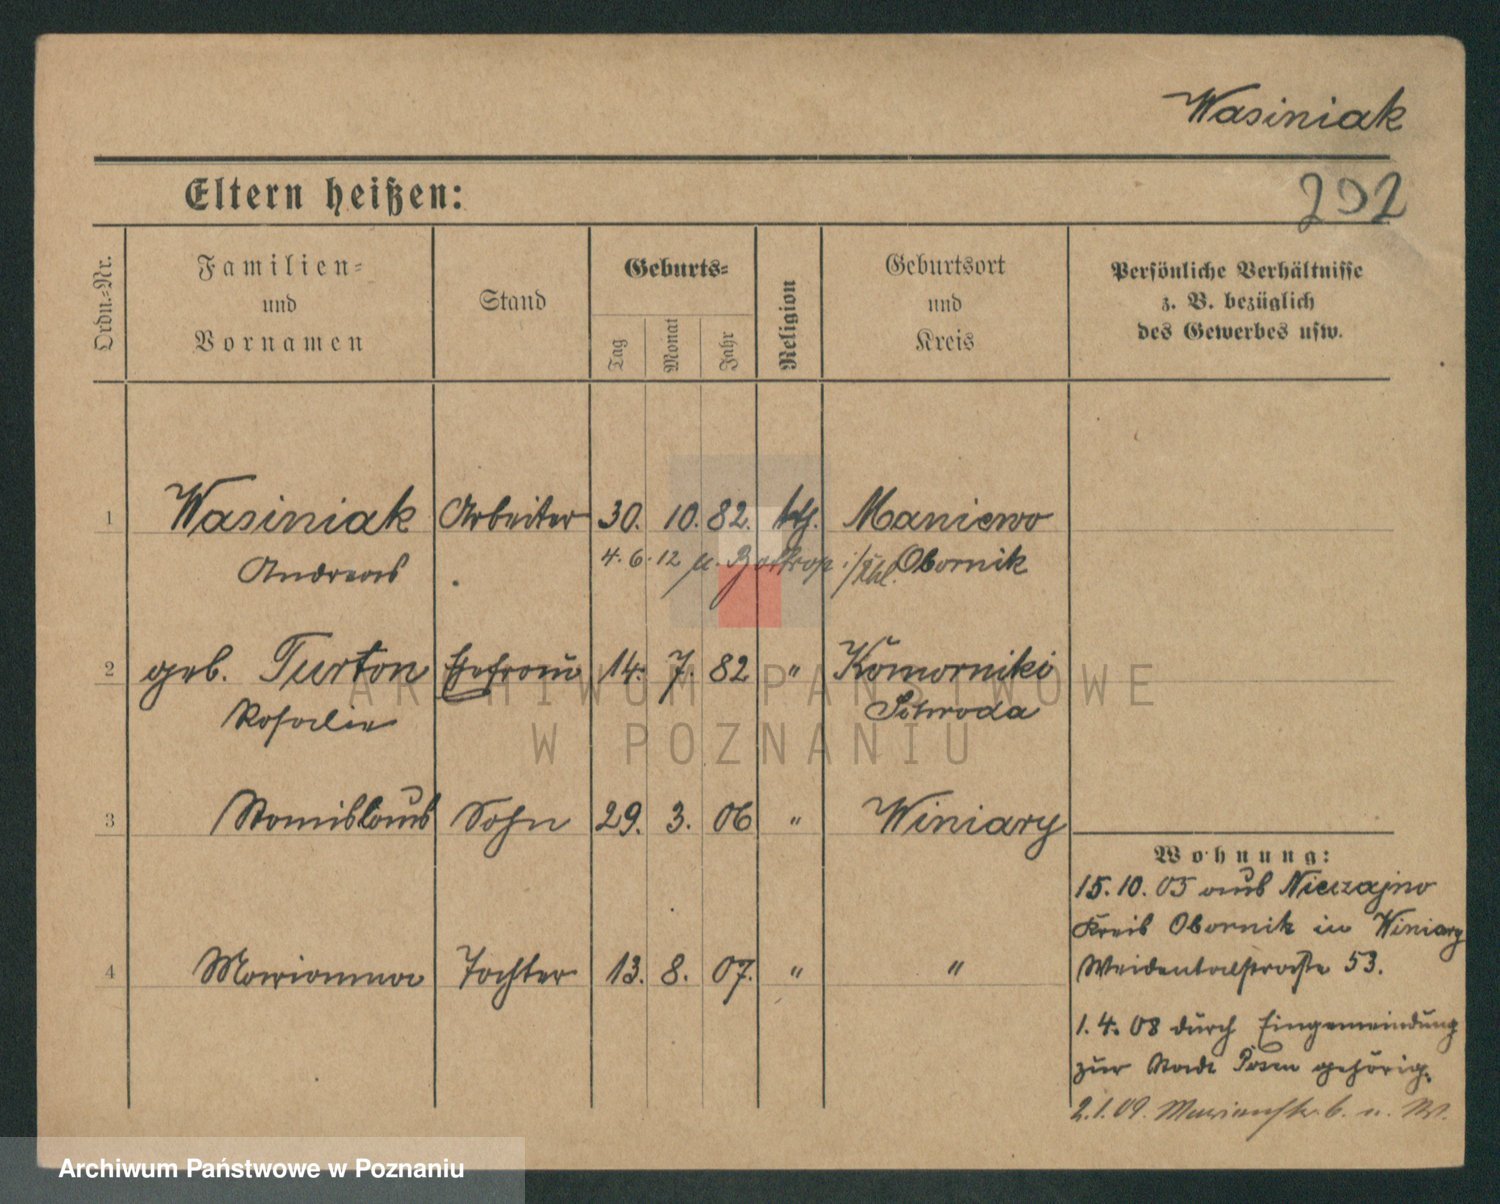 Wasiniak
Eltern heißen:
292
Ordn.-Nr.
Familien-
und
Vornamen
Stand
Geburts-
Tag
Monat
Jahr
Religion
Geburtsort
und
Kreis
Persönliche Verhältnisse
z. B. bezüglich
des Gewerbes usw.
1 Wasiniak Arbeiter 30. 10. 82. kth. Maniewo
Andreas Obornik
4. 6. 12 n. Bottrop
2 geb. Turton Ehefrau 14. 7. 82 " Komorniki
Rosalie Schroda
3 Stanislaus Sohn 29. 3. 06 " Winiary
4 Marianna Tochter 13. 8. 07. " "
Wohnung:
15. 10. 05 aus Nieczajno
Kreis Obornik in Winiary
Weidentalstraße 53.
1. 4. 08 durch Eingemeindung
zur Stadt Posen gehörig.
2. 1. 09. Marienstr. 6.
ARCHIWUM PAŃSTWOWE
W POZNANIU
Archiwum Państwowe w Poznaniu